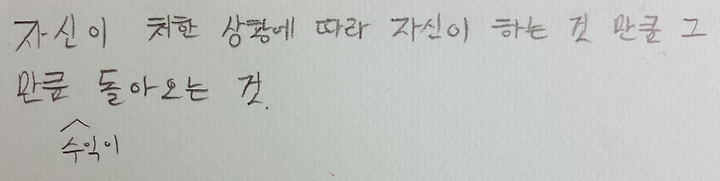 자신이 처한 상황에 따라 자신이 하는 것 만큼 그
만큼 돌아오는 것.
수익이